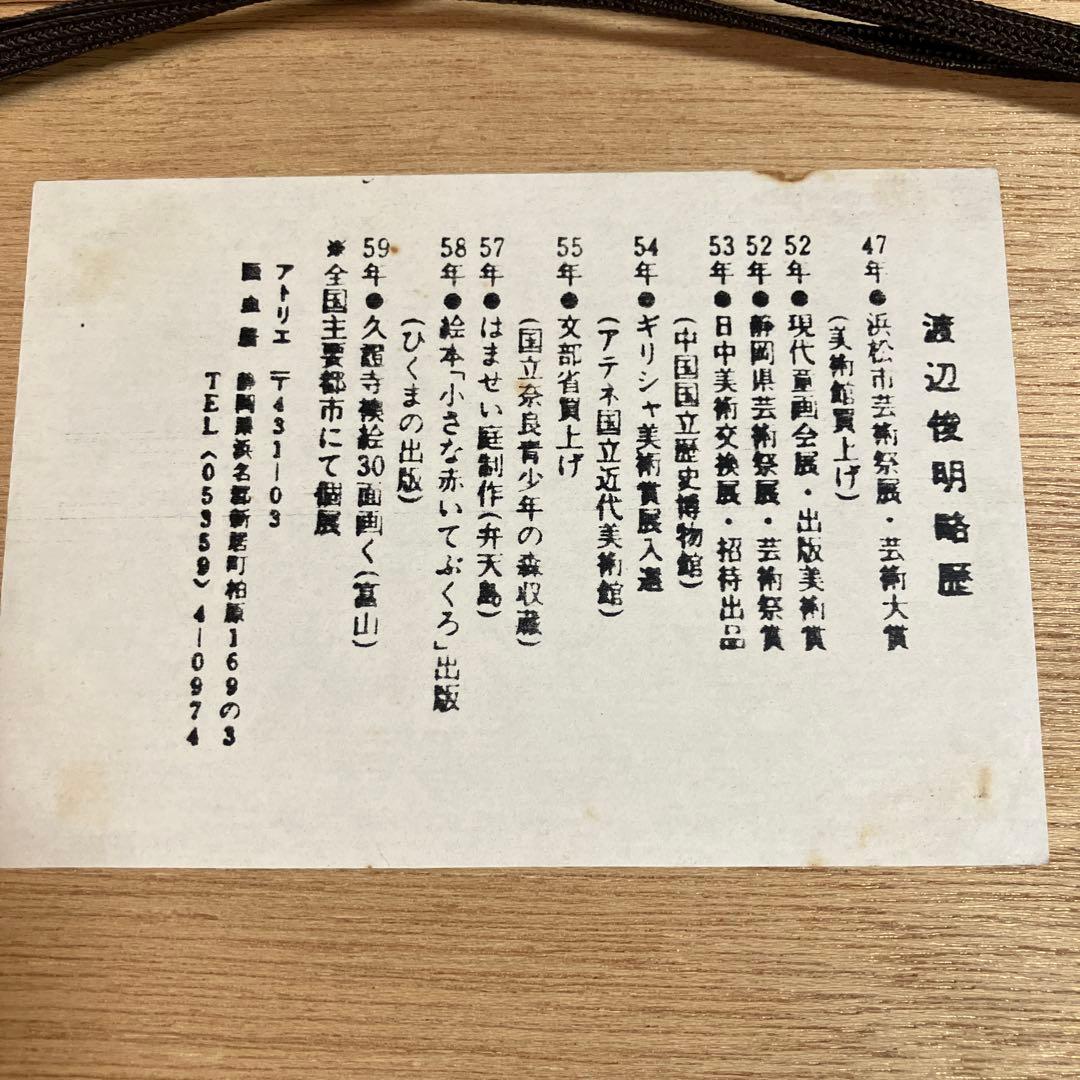 渡辺俊明略歴
47年●浜松市芸術祭展・芸術大賞
(美術館買上げ)
52年●現代童画会展・出版美術賞
52年●静岡県芸術祭展・芸術祭賞
53年●日中美術交換展・招待出品
(中国国立歴史博物館)
54年●ギリシャ美術賞展入選
(アテネ国立近代美術館)
55年●文部省買上げ
(国立奈良青少年の森収蔵)
57年●はませい庭制作(弁天島)
58年●絵本「小さな赤いてぶくろ」出版
(ひくまの出版)
59年●久遠寺襖絵30面画く(富山)
※全国主要都市にて個展
アトリエ 〒431-03
静岡県浜名郡新居町柏原169の3
TEL(05359)4-0974